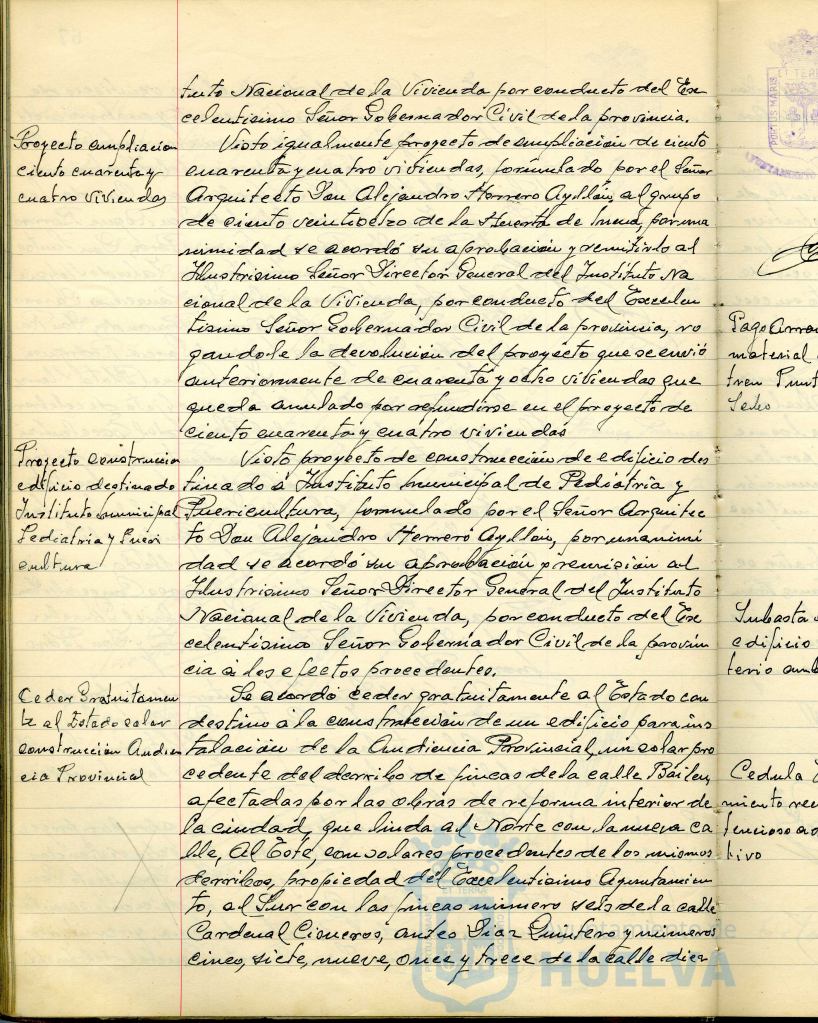 tuto Nacional de la Vivienda por conducto del Ex
celentisimo Señor Gobernador Civil de la provincia.
Proyecto ampliacion
ciento cuarenta y
cuatro viviendas
Visto igualmente proyecto de ampliación de ciento
cuarenta y cuatro viviendas, formulado por el Señor
Arquitecto Don Alejandro Herrero Ayllón, al grupo
de ciento veintiocho de la Huerta de Mena, por una
nimidad se acordó su aprobación y remitirlo al
Ilustrisimo Señor Director General del Instituto Na
cional de la Vivienda, por conducto del Excelen
tisimo Señor Gobernador Civil de la provincia, ro
gandole la devolución del proyecto que se envió
anteriormente de cuarenta y ocho viviendas que
queda anulado por refundirse en el proyecto de
ciento cuarenta y cuatro viviendas
Proyecto construccion
edificio destinado
Instituto municipal
Pediatria y Pueri
cultura
Visto proyecto de construcción de edificio des
tinado á Instituto municipal de Pediatría y
Puericultura, formulado por el Señor Arquitec
to Don Alejandro Herrero Ayllón, por unanimi
dad se acordó su aprobación y remisión al
Ilustrisimo Señor Director General del Instituto
Nacional de la Vivienda, por conducto del Ex
celentisimo Señor Gobernador Civil de la provin
cia á los efectos procedentes.
Ceder Gratuitamen
te al Estado solar
construcción Audien
cia Provincial
Se acordó ceder gratuitamente al Estado con
destino á la construcción de un edificio para ins
talación de la Audiencia Provincial, un solar pro
cedente del derribo de fincas de la calle Bailen,
afectadas por las obras de reforma interior de
la ciudad, que linda al Norte con la nueva ca
lle, Al Este, con solares procedentes de los mismos
derribos, propiedad del Excelentisimo Ayuntamien
to, al Sur con las fincas número seis de la calle
Cardenal Cisneros, antes Diaz Quintero y números
cinco, siete, nueve, once y trece de la calle diez
Ayuntamiento de
HUELVA
Pago Arren
material
tren Punt
Sebo
Subasta
edificio
terio
Cedula
miento rec
tencioso ad
tivo